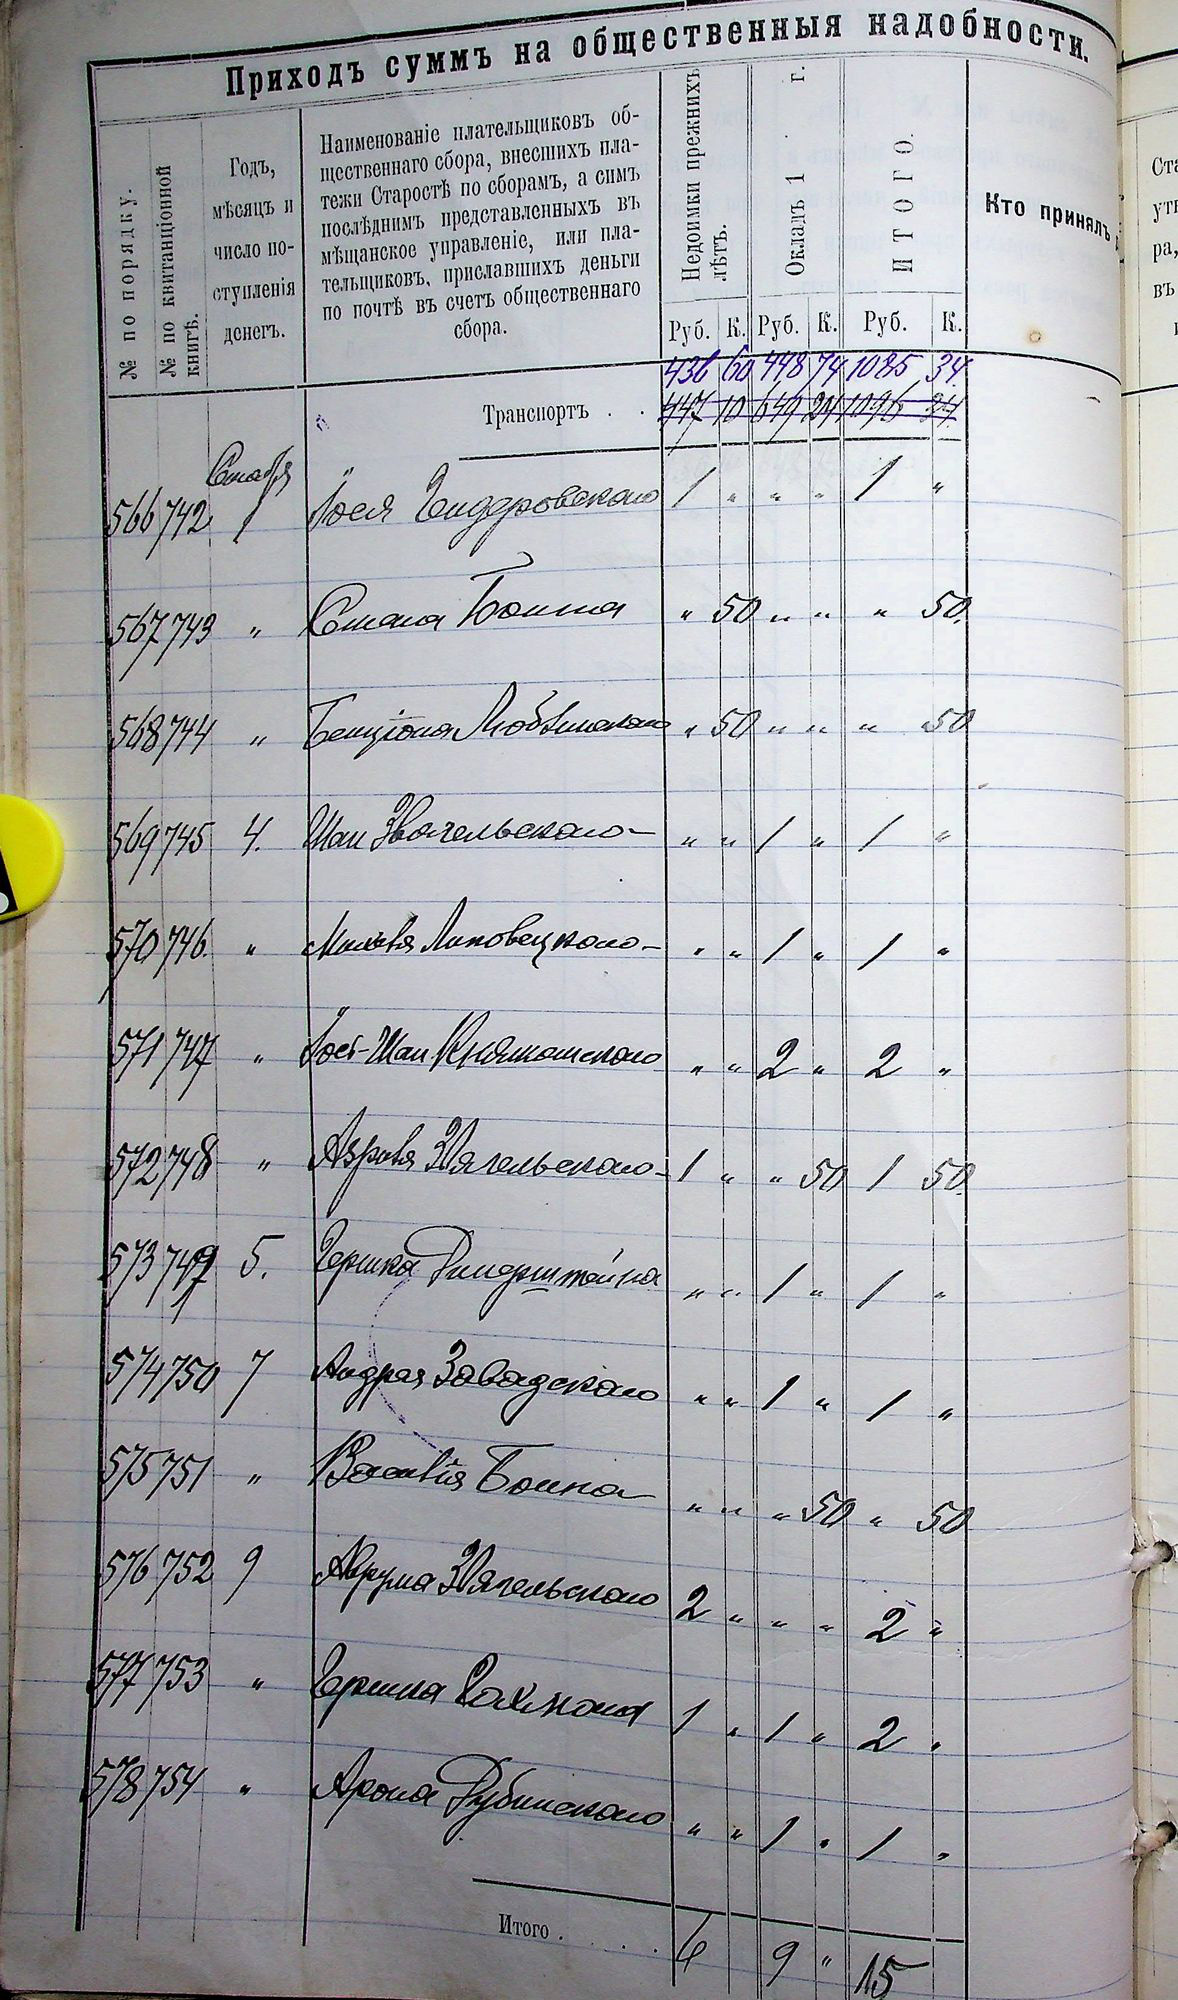 Приходъ суммъ на общественныя надобности.
№ по порядку.
№ по квитанціонной
книгѣ.
Годъ,
мѣсяцъ и
число по-
ступленія
денегъ.
Наименованіе плательщиковъ об-
щественнаго сбора, внесшихъ пла-
тежи Старостѣ по сборамъ, а симъ
послѣднимъ представленныхъ въ
мѣщанское управленіе, или пла-
тельщиковъ, приславшихъ деньги
по почтѣ въ счетъ общественнаго
сбора.
Недоимки прежнихъ
лѣтъ.
Окладъ 1 г.
ИТОГО.
Кто принялъ
Руб. К. Руб. К. Руб. К.
436 60 448 74 1085 34
Транспортъ . . 447 10 649 24 1096 34
566 742 1 Іося 1 " " " 1 "
567 743 " Боина " 50 " " " 50
568 744 " Бенціона Любинскаго " 50 " " " 50
569 745 4. Шаи Звягельскаго " " 1 " 1 "
570 746 " Липовецкаго " " 1 " 1 "
571 747 " Іось-Шаи Княжанскаго " " 2 " 2 "
572 748 " Звягельскаго 1 " " 50 1 50
573 749 5. Гершка " " 1 " 1 "
574 750 7 Андрея Завадскаго " " 1 " 1 "
575 751 " Боина " " " 50 " 50
576 752 9 Аврума Звягельскаго 2 " " " 2 "
577 753 " Гершка 1 " 1 " 2 "
578 754 " Арона Рубинскаго " " 1 " 1 "
Итого . . . . . 6 9 " 15
Ста
ра,
въ